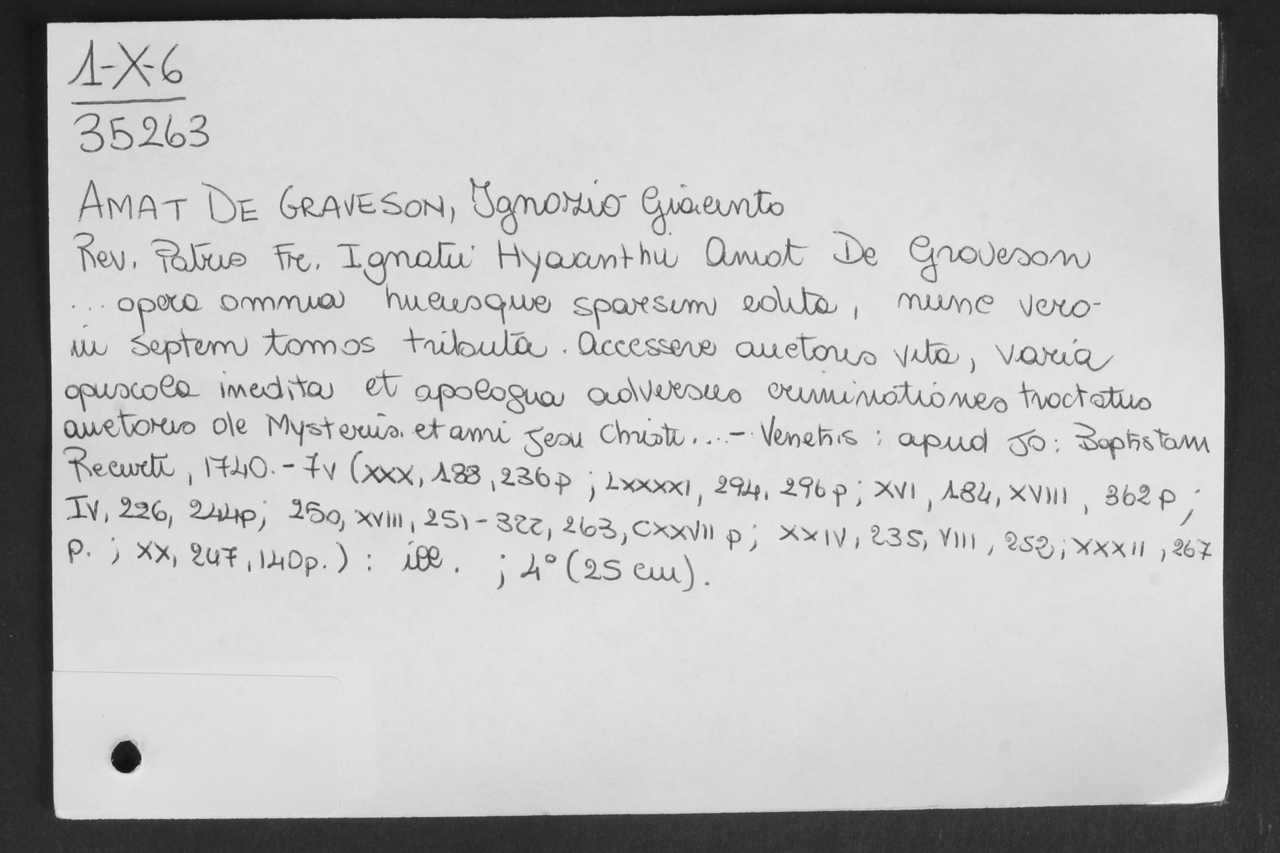 1-X-6
35263
AMAT DE GRAVESON, Ignazio Giacinto
Rev. Patris Fr. Ignatii Hyacinthii Amat De Graveson
... opera omnia hucusque sparsim edita, nunc vero
in septem tomos tributa. Accessere auctoris vita, varia
opuscola inedita et apologia adversus criminationes tractatus
auctoris de Mysteriis. et ami Jesu Christi...- Venetiis : apud Jo: Baptistam
Recurti, 1740.- 7v (XXX, 188, 236p ; LXXXXI, 294, 296p; XVI, 184, XVIII, 362p ;
IV, 226, 244p; 250, XVIII, 251-322, 263, CXXVII p; XXIV, 235, VIII, 252; XXXII, 267
p. ; XX, 247, 140p.) : ill. ; 4° (25 cm).